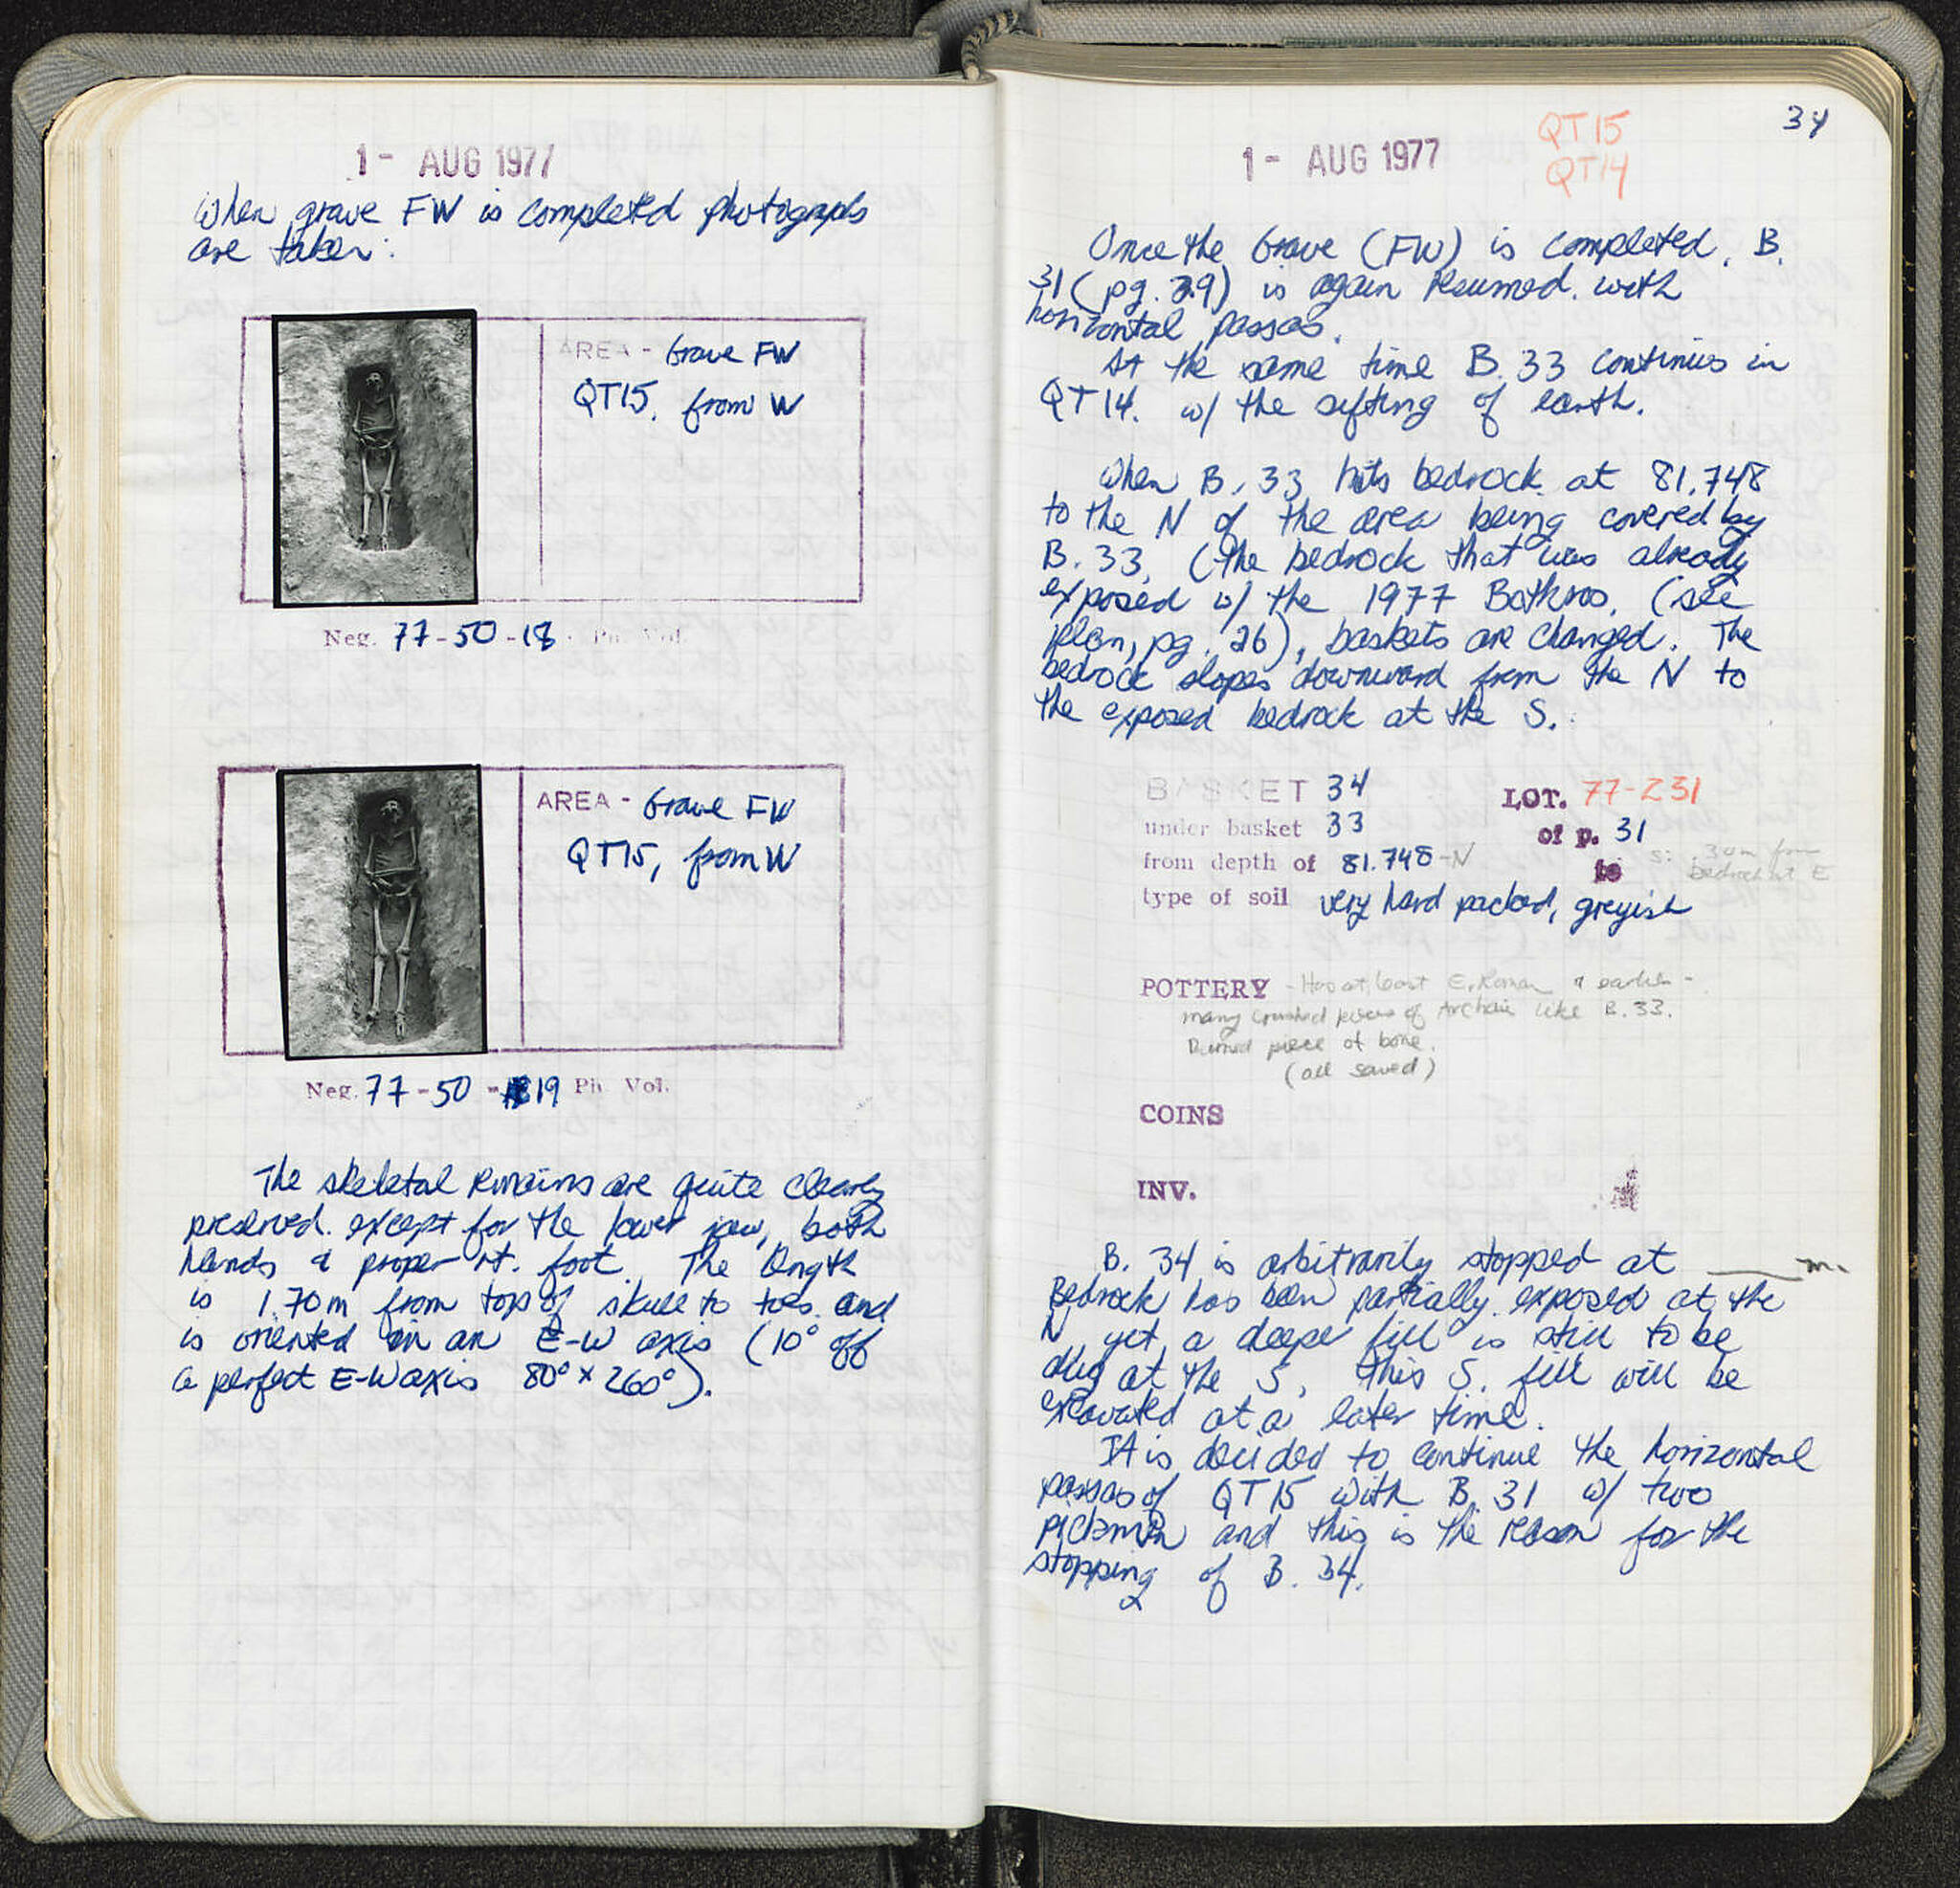 1 - AUG 1977
When grave FW is completed photographs
are taken:
AREA - Grave FW
QT15, from W
Neg. 77-50-18 Ph Vol.
AREA - Grave FW
QT15, from W
Neg. 77-50-19 Ph Vol.
The skeletal remains are quite clearly
preserved except for the lower jaw, both
hands & proper rt. foot. The length
is 1.70m from top of skull to toes and
is oriented in an E-W axis (10° off
a perfect E-W axis 80° x 260°).
34
QT15
QT14
1 - AUG 1977
Once the Grave (FW) is completed, B.
31 (pg. 29) is again resumed with
horizontal passes.
At the same time B. 33 continues in
QT14. w/ the sifting of earth.
When B. 33 hits bedrock at 81.748
to the N of the area being covered by
B. 33, (the bedrock that was already
exposed w/ the 1977 Bothros, (see
plan, pg. 26), baskets are changed. The
bedrock slopes downward from the N to
the exposed bedrock at the S.
BASKET 34 LOT. 77-231
under basket 33 of p. 31
from depth of 81.748 -N to S: .30m from
bedrock at E
type of soil very hard packed, greyish
POTTERY - Has at least E. Roman & earlier -
many crushed pieces of Archaic like B. 33.
Burned piece of bone.
(all saved)
COINS
INV.
B. 34 is arbitrarily stopped at ____ m.
Bedrock has been partially exposed at the
N yet a deeper fill is still to be
dug at the S, this S. fill will be
excavated at a later time.
It is decided to continue the horizontal
passes of QT15 with B. 31 w/ two
pickmen and this is the reason for the
stopping of B. 34.